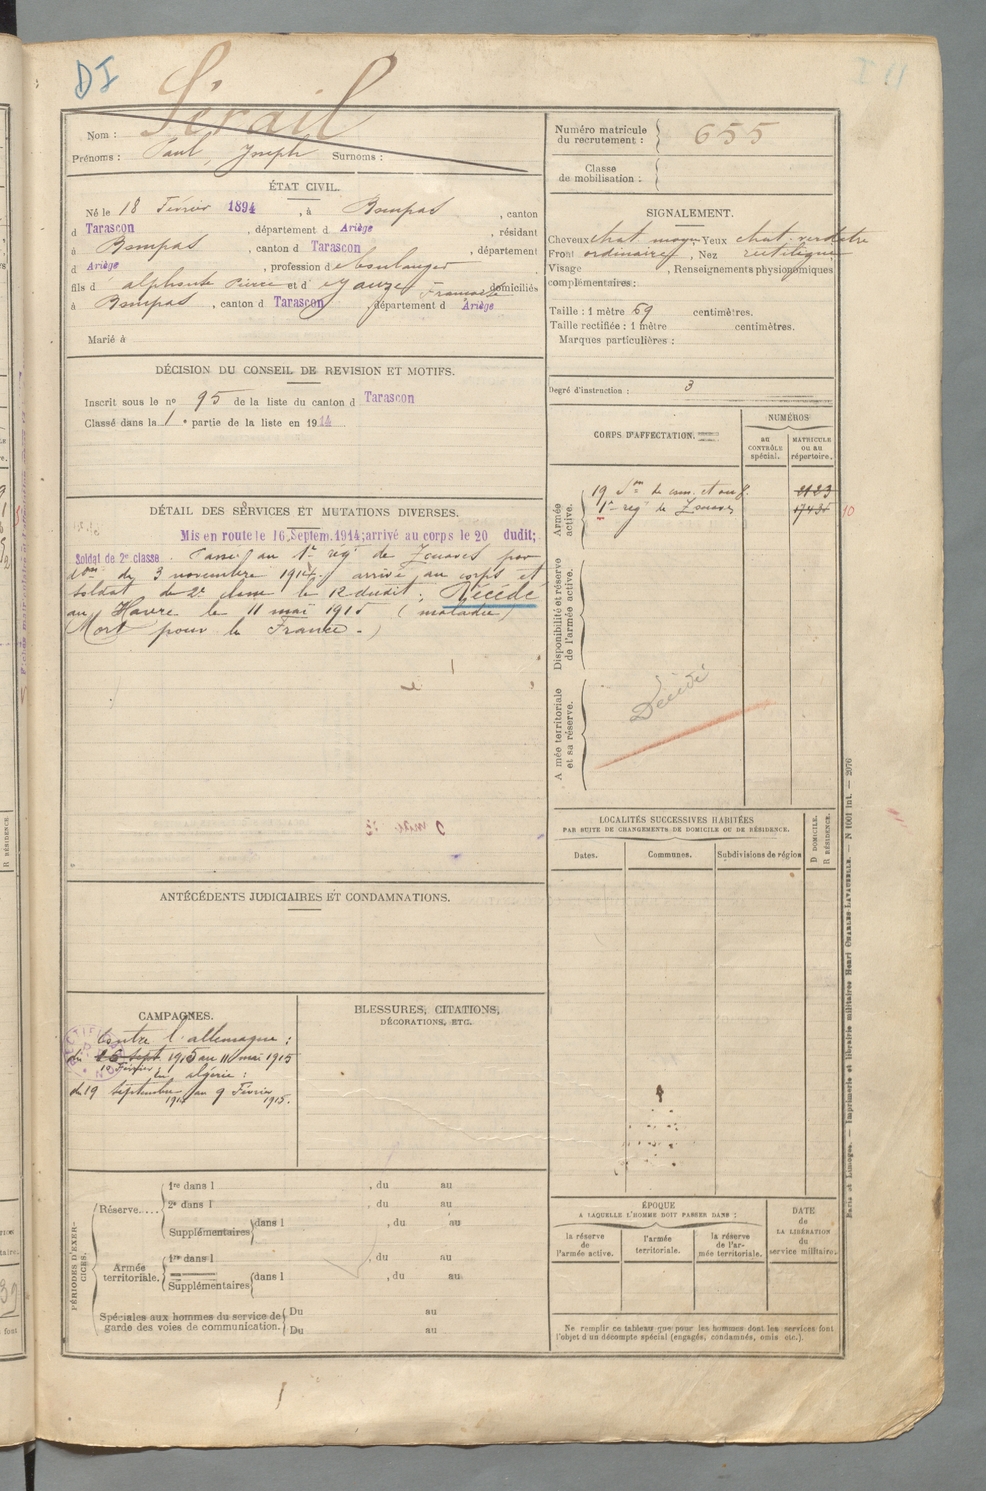 DI
Nom : Sérail
Prénoms : Paul, Joseph Surnoms :
Numéro matricule du recrutement : 655
Classe de mobilisation :
ÉTAT CIVIL.
Né le 18 Février 1894, à Bompas, canton
d Tarascon, département d Ariège, résidant
à Bompas, canton d Tarascon, département
d Ariège, profession de boulanger
fils d alphonse Pierre et d' Françoise domiciliés
à Bompas, canton d Tarascon, département d Ariège
Marié à
SIGNALEMENT.
Cheveux chat. moyen Yeux chat. verdâtre
Front ordinaire, Nez rectiligne
Visage , Renseignements physionomiques
complémentaires :
Taille : 1 mètre 69 centimètres.
Taille rectifiée : 1 mètre centimètres.
Marques particulières :
Degré d'instruction : 3
DÉCISION DU CONSEIL DE REVISION ET MOTIFS.
Inscrit sous le nº 95 de la liste du canton d Tarascon
Classé dans la 1e partie de la liste en 1914.
CORPS D'AFFECTATION.
NUMÉROS
au CONTRÔLE spécial.
MATRICULE OU AU répertoire.
Armée active.
19 Son de com. et ouv.
1er rég de Zouaves
10
Disponibilité et réserve de l'armée active.
Armée territoriale et sa réserve.
Décédé
DÉTAIL DES SERVICES ET MUTATIONS DIVERSES.
Mis en route le 16 Septem. 1914; arrivé au corps le 20 dudit;
Soldat de 2e classe. Passé au 1er rég de Zouaves par
don du 3 novembre 1914; arrivé au corps et
soldat de 2e classe le 12 dudit; Décédé
au Havre le 11 mai 1915 (maladie)
(Mort pour la France.)
LOCALITÉS SUCCESSIVES HABITÉES
PAR SUITE DE CHANGEMENTS DE DOMICILE OU DE RÉSIDENCE.
Dates.
Communes.
Subdivisions de région
D DOMICILE.
R RÉSIDENCE.
ANTÉCÉDENTS JUDICIAIRES ET CONDAMNATIONS.
CAMPAGNES.
Contre l'allemagne :
du 26 sept 10 Février 1915 au 11 mai 1915
En algérie :
du 19 septembre 1914 au 9 Février 1915.
BLESSURES, CITATIONS,
DÉCORATIONS, ETC.
PÉRIODES D'EXERCICES.
Réserve.....
1re dans l , du au
2e dans l , du au
Supplémentaires dans l , du au
Armée territoriale.
1re dans l , du au
Supplémentaires dans l , du au
Spéciales aux hommes du service de
garde des voies de communication.
Du au
Du au
ÉPOQUE
A LAQUELLE L'HOMME DOIT PASSER DANS :
la réserve de l'armée active.
l'armée territoriale.
la réserve de l'armée territoriale.
DATE de LA LIBÉRATION du service militaire.
Ne remplir ce tableau que pour les hommes dont les services font
l'objet d'un décompte spécial (engagés, condamnés, omis etc.).
Paris et Limoges. — Imprimerie et librairie militaires Henri CHARLES-LAVAUZELLE. — N 1001 int. — 2076